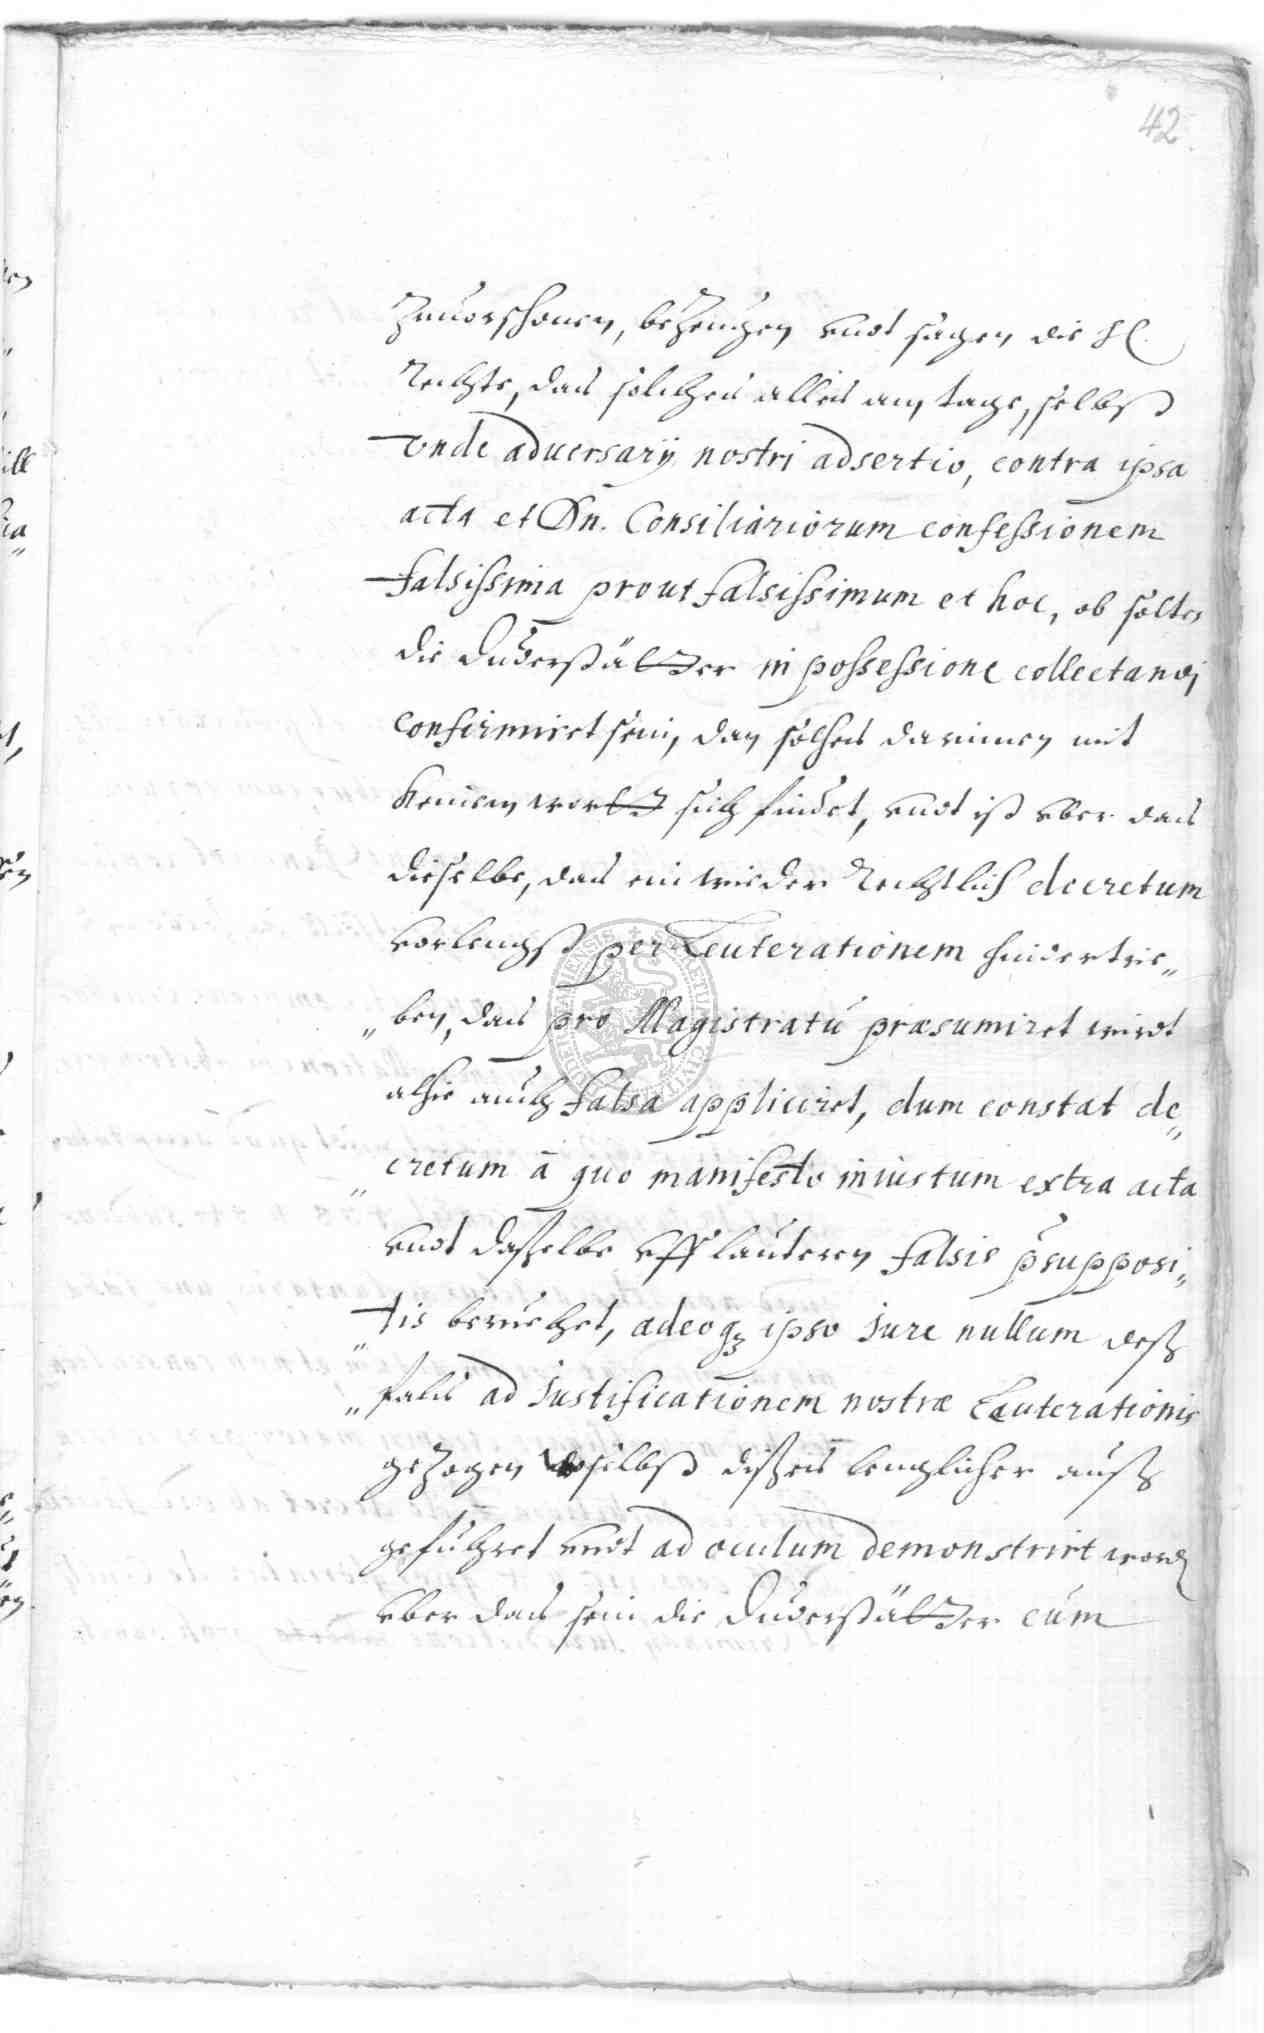 42
zuuorschonen, bezeugen vndt sagen die hl.
Rechte, das solches alles am tage, selbst
vnde aduersarij nostri adsertio, contra ipsa
acta et Dn. Consiliariorum confessionem
falsissima prout falsissimum et hoc, ob solten
die Duderstätter in possessione collectandj
confirmiret sein, dan solches darinnen mit
keinem wortt sich findet, vndt ist vber das
dieselbe, das ein wieder Rechtlich decretum
vorlengst per Leuterationem hindertrie„
„ben, das pro Magistratu præsumiret wirdt
alhie auch falsa appliciret, dum constat de„
„cretum â quo manifesto iniustum extra acta
vndt dasselbe vff lauteren falsis p̃supposi„
„tis beruehet, adeoq₃ ipso Jure nullum deß„
„fals ad Justificationem nostræ Leuterationis
gezogen selbst disseis lenglicher auß
geführet vndt ad oculum demonstrirt word
vber das sein die Duderstätter cum